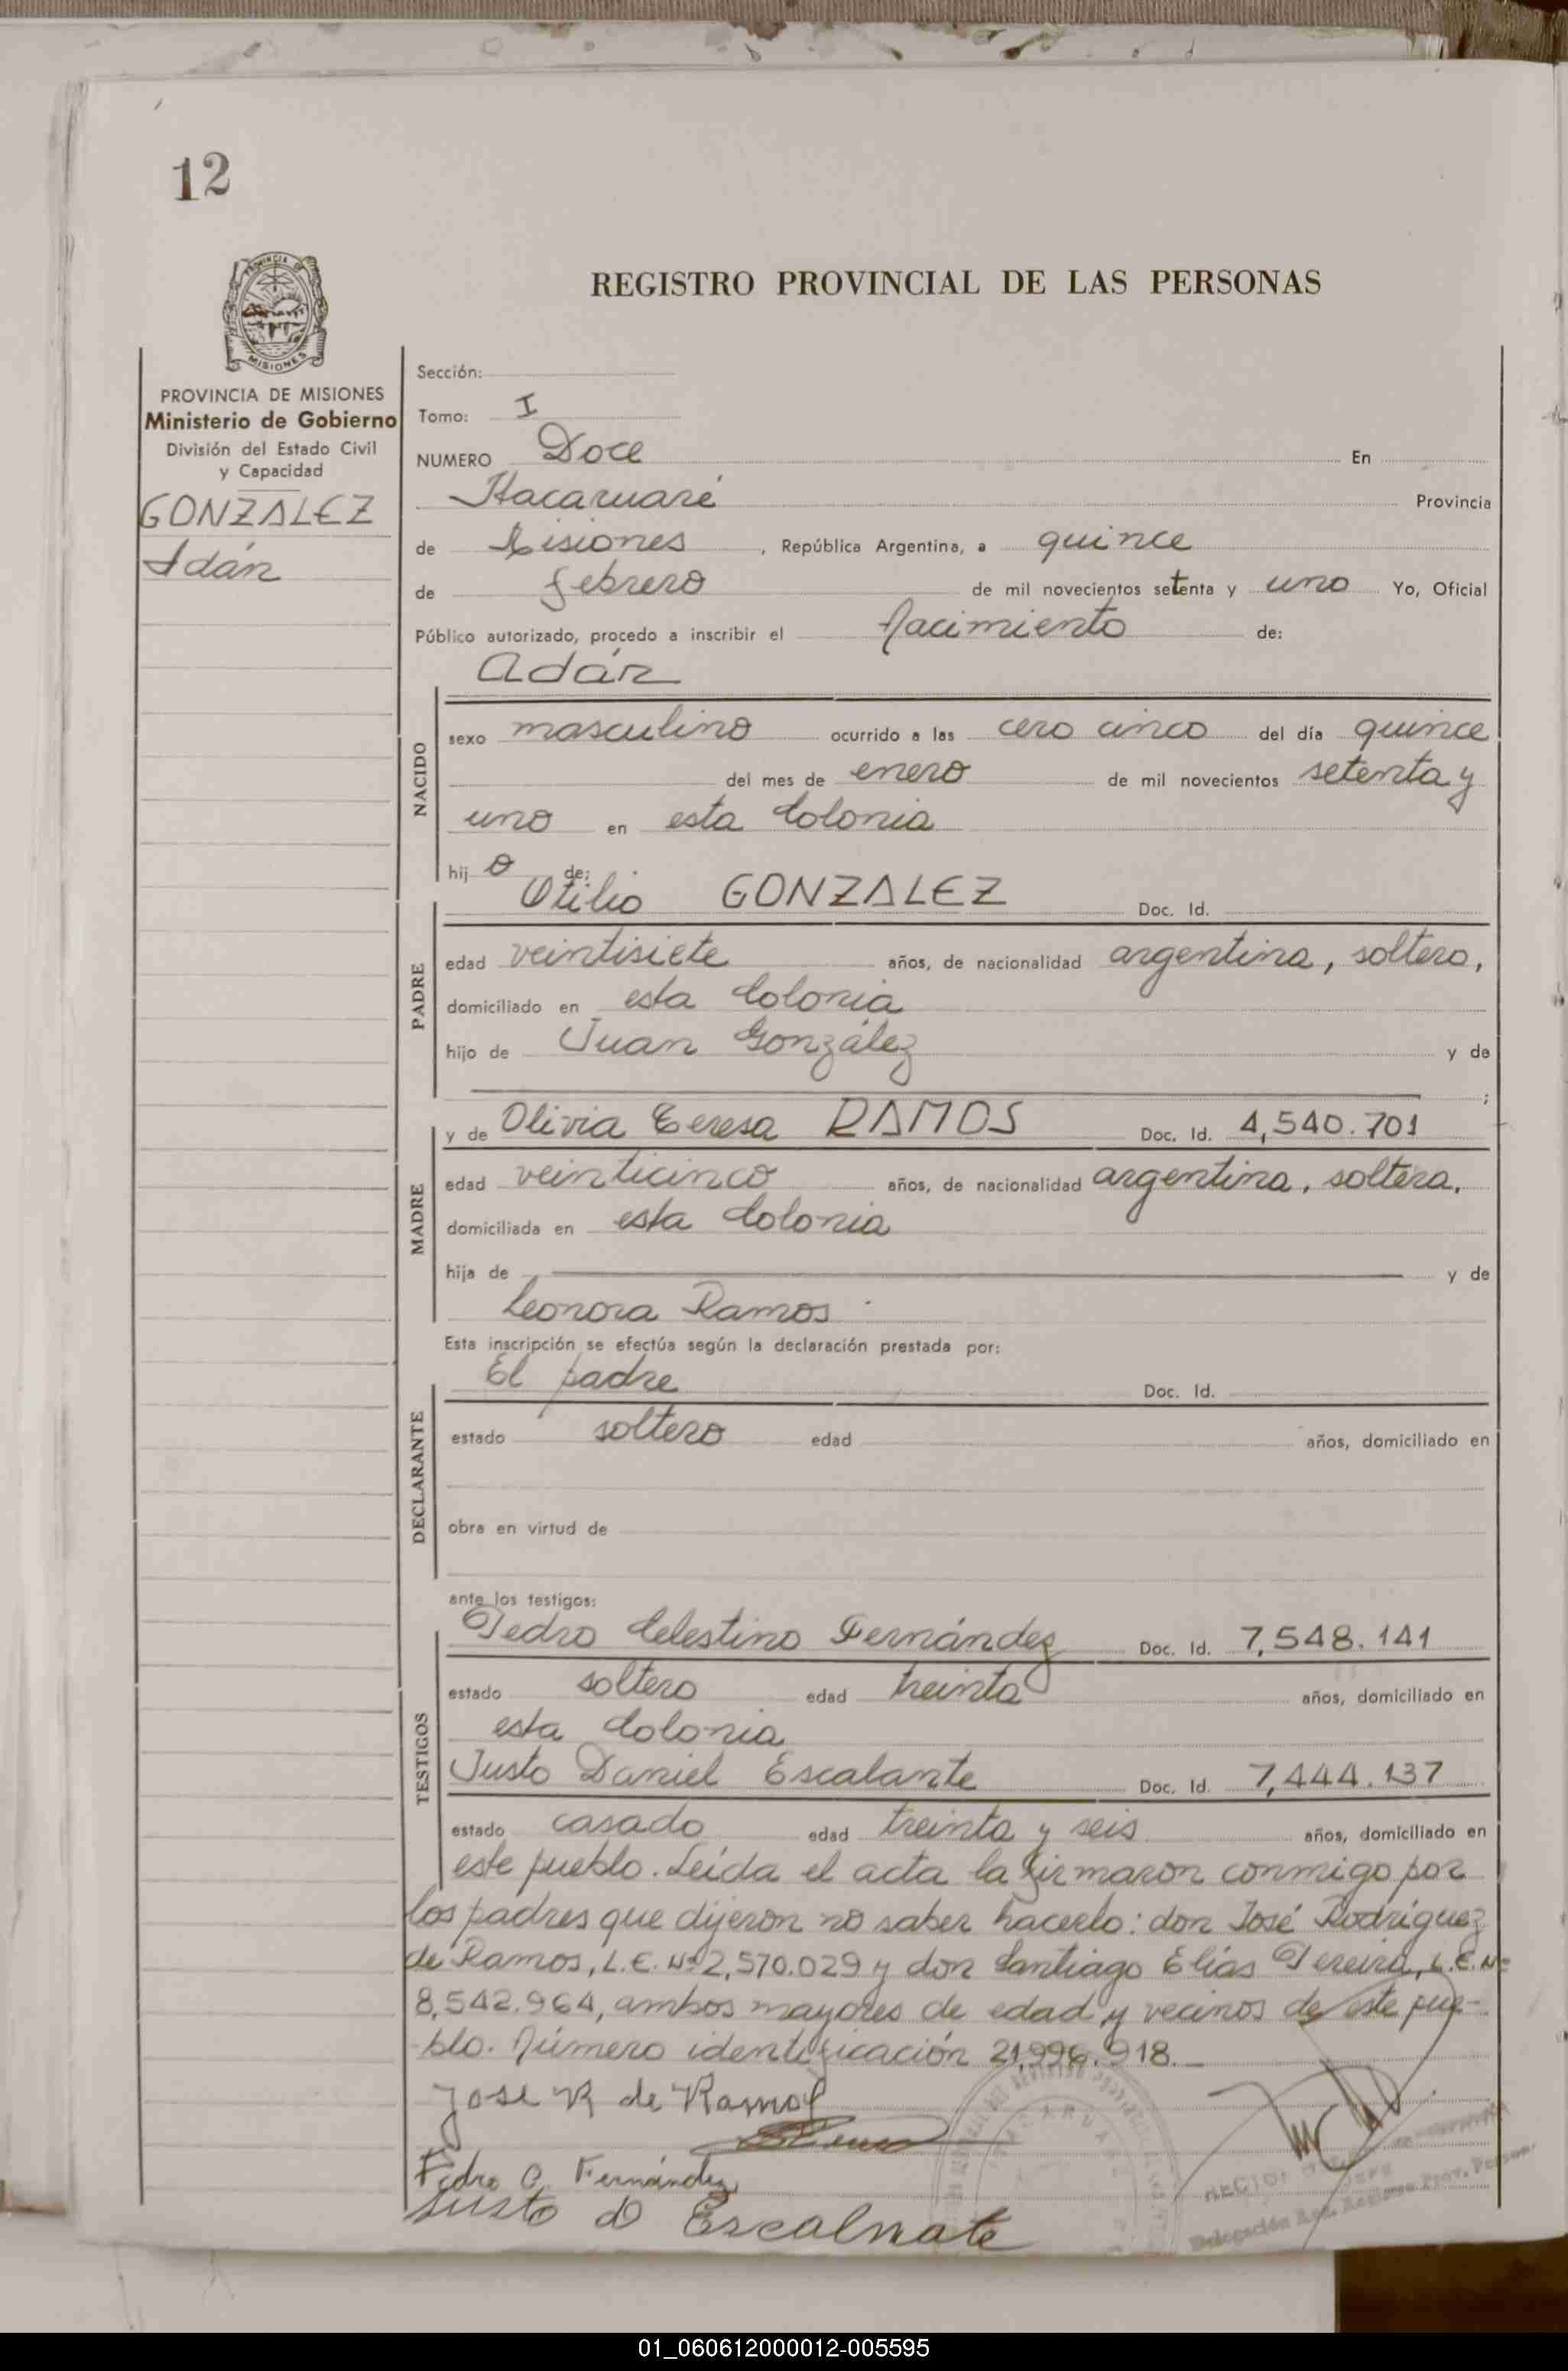 12
REGISTRO PROVINCIAL DE LAS PERSONAS
PROVINCIA DE
MISIONES
PROVINCIA DE MISIONES
Ministerio de Gobierno
División del Estado Civil
y Capacidad
GONZALEZ
Adán
Sección:
Tomo: I
NUMERO Doce En
Itacaruaré Provincia
de Misiones , República Argentina, a quince
de febrero de mil novecientos setenta y uno Yo, Oficial
Público autorizado, procedo a inscribir el Nacimiento de:
Adán
NACIDO
sexo masculino ocurrido a las cero cinco del día quince
del mes de enero de mil novecientos setenta y
uno en esta Colonia
hijo de:
PADRE
Otilio GONZALEZ Doc. Id.
edad veintisiete años, de nacionalidad argentina, soltero,
domiciliado en esta Colonia
hijo de Juan González y de
;
MADRE
y de Olivia Teresa RAMOS Doc. Id. 4,540.701
edad veinticinco años, de nacionalidad argentina, soltera.
domiciliada en esta Colonia
hija de y de
Leonora Ramos
Esta inscripción se efectúa según la declaración prestada por:
DECLARANTE
El padre Doc. Id.
estado soltero edad años, domiciliado en
obra en virtud de
ante los testigos:
TESTIGOS
Pedro Celestino Fernández Doc. Id. 7,548.141
estado soltero edad treinta años, domiciliado en
esta Colonia
Justo Daniel Escalante Doc. Id. 7,444.137
estado casado edad treinta y seis años, domiciliado en
este pueblo. Leída el acta la firmaron conmigo por
los padres que dijeron no saber hacerlo: don José Rodríguez
de Ramos, L.E. Nº 2,570.029 y don Santiago Elías Pereira, L.E. Nº
8,542.964, ambos mayores de edad y vecinos de este pue-
blo. Número identificación 21,996.918.
Jose R de Ramos
Pedro C. Fernández
Justo D Escalnate
Delegación Reg. Prov. Person.
01_060612000012-005595